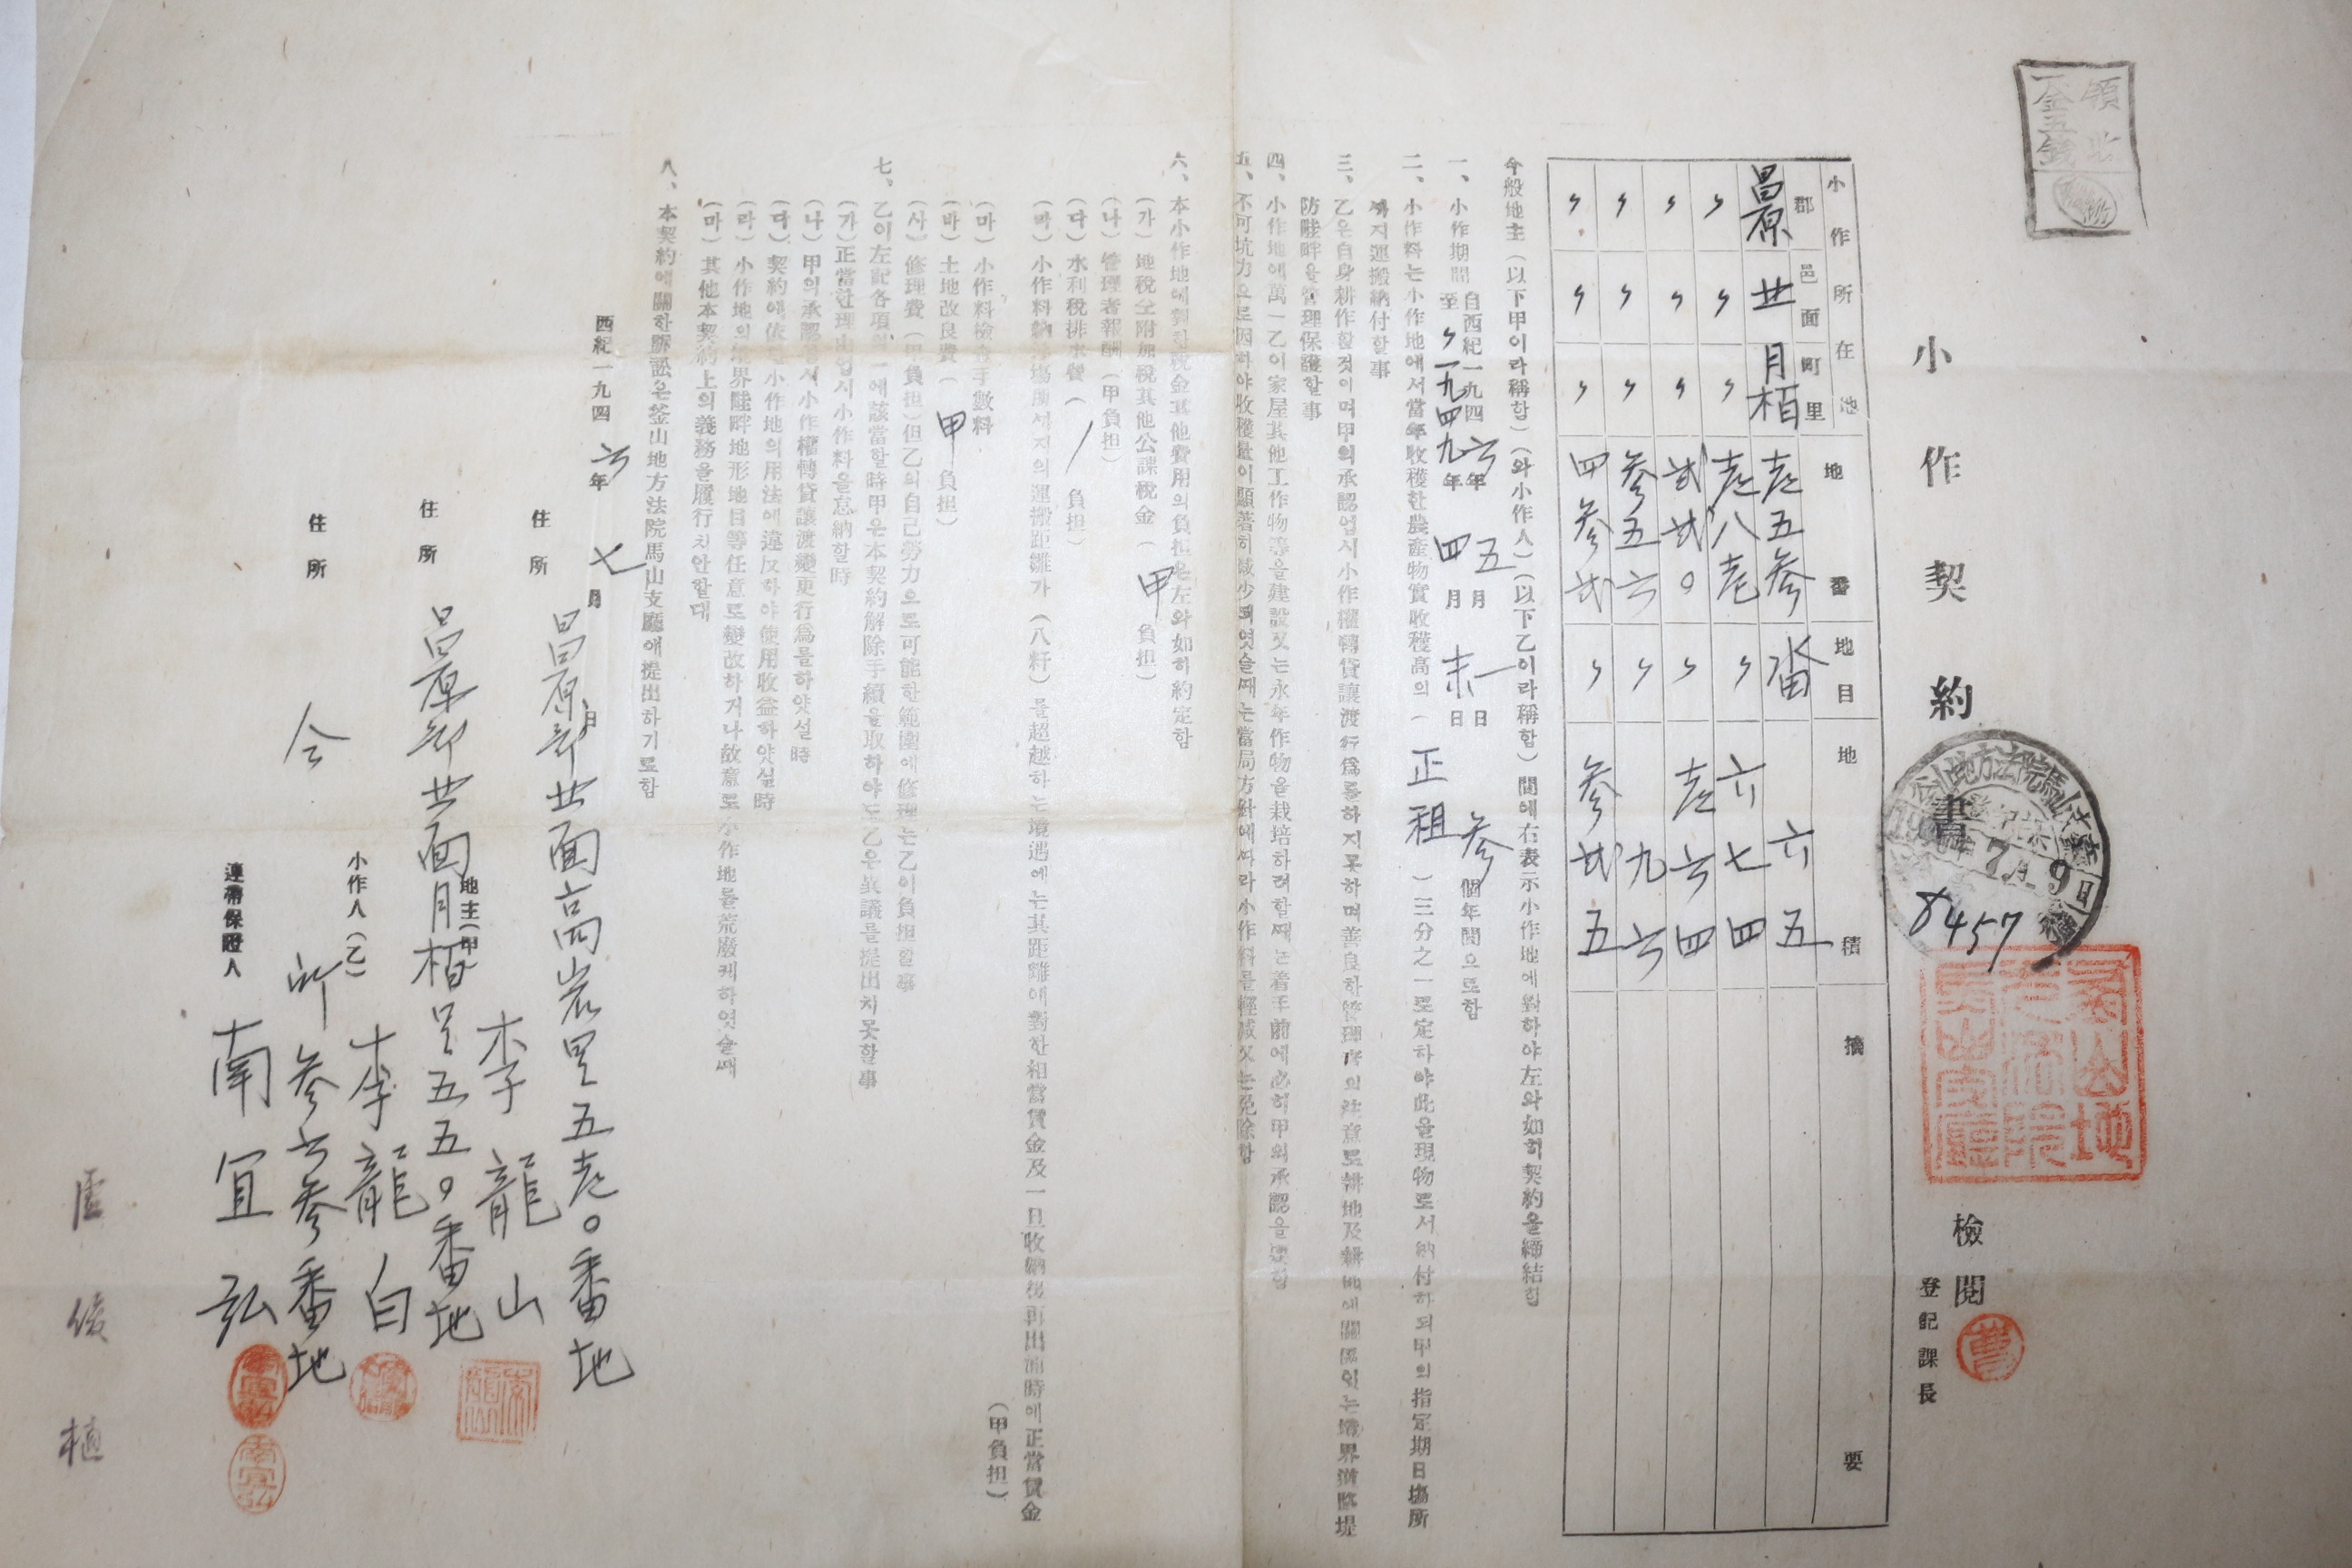 領收
金五錢
小作契約書
釜山地方法院馬山支廳
7月9日
8457
檢閱
登記課長
小作所在地 地番 地目 地積 摘要
郡 邑面 町里
昌原 北 月栢 壱五参 畓 六六五
〃 〃 〃 壱八壱 〃 六七四
〃 〃 〃 弐弐〇 〃 壱六四
〃 〃 〃 参五六 〃 九六
〃 〃 〃 四参弐 〃 参弐五
今般地主(以下甲이라稱함)(와小作人)(以下乙이라稱함)間에右表示小作地에對하야左와如히契約을締結함
一、小作期間 自西紀一九四六年五月一日 至〃一九四九年四月末日 参個年間으로함
二、小作料는小作地에서當年收穫한農產物實收穫高의(正租)三分之一로定하야此을現物로서納付하되甲의指定期日場所
까지運搬納付할事
三、乙은自身耕作할것이며甲의承認업시小作權轉貸讓渡行爲를하지못하며善良한管理者의注意로耕地及耕地에關係잇는境界溝路堤
防畦畔을管理保護할事
四、小作地에萬一乙이家屋其他工作物等을建設又는永年作物을栽培하려할때는着手前에必히甲의承認을要함
五、不可抗力으로因하야收穫量이顯著히减少되엿슬때는當局方針에따라小作料를輕减又는免除함
六、本小作地에對한稅金其他費用의負担은左와如히約定함
(가)地稅仝附加稅其他公課稅金(甲負担)
(나)管理者報酬(甲負担)
(다)水利稅排水費(/負担)
(라)小作料納付場所까지의運搬距離가(八粁)를超越하는境遇에는其距離에對한相當賃金及一旦收納後再出浦時에正當賃金
(甲負担)
(마)小作料檢查手數料
(바)土地改良費(甲負担)
(사)修理費(甲負担)但乙의自己勞力으로可能한範圍에修理는乙이負担할事
七、乙이左記各項의一에該當할時甲은本契約解除手續을取하야도乙은異議를提出치못할事
(가)正當한理由업시小作料을怠納할時
(나)甲의承認업시小作權轉貸讓渡變更行爲를하얏실時
(다)契約에依한小作地의用法에違反하야使用收益하얏실時
(라)小作地의境界畦畔地形地目等任意로變改하거나故意로小作地를荒廢케하엿슬때
(마)其他本契約上의義務을履行치안할대
八、本契約에關한訴訟은釜山地方法院馬山支廳에提出하기로함
西紀一九四六年七月 日
住所 昌原郡北面高岩里五壱〇番地
地主(甲) 李龍山
住所 昌原郡北面月栢里五五〇番地
小作人(乙) 李龍白
住所 仝 所参六参番地
連帶保證人 南宜弘
盧俊植